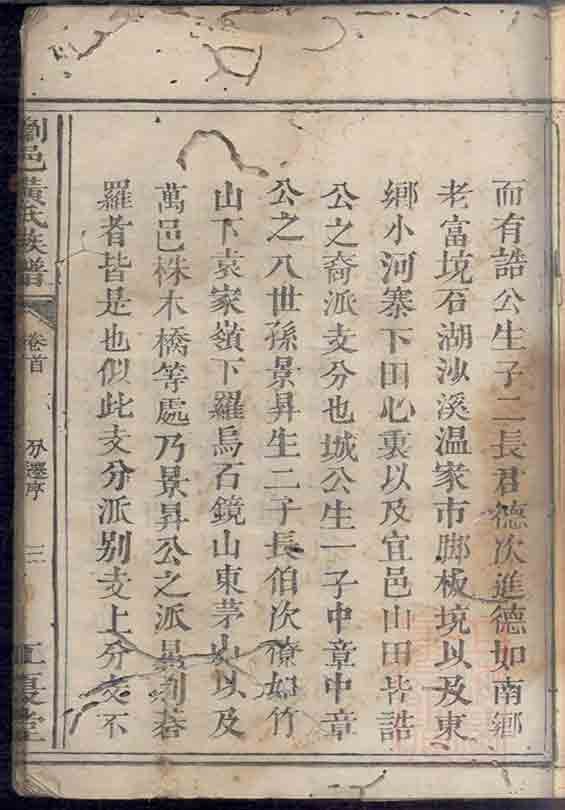 而有誥公生子二長君德次進德如南鄉
老富境石湖沙溪温家市脚板境以及東
鄉小河寨下田心裏以及宜邑山田皆誥
公之裔派支分也城公生一子中章中章
公之八世孫景昇生二子長伯次僚如竹
山下袁家嶺下羅烏石鏡山東茅山以及
萬邑株木橋等處乃景昇公之派景
羅者皆是也似此支分派别支上分支不
劉邑黃氏族譜
卷首
分遷序
三
江夏堂